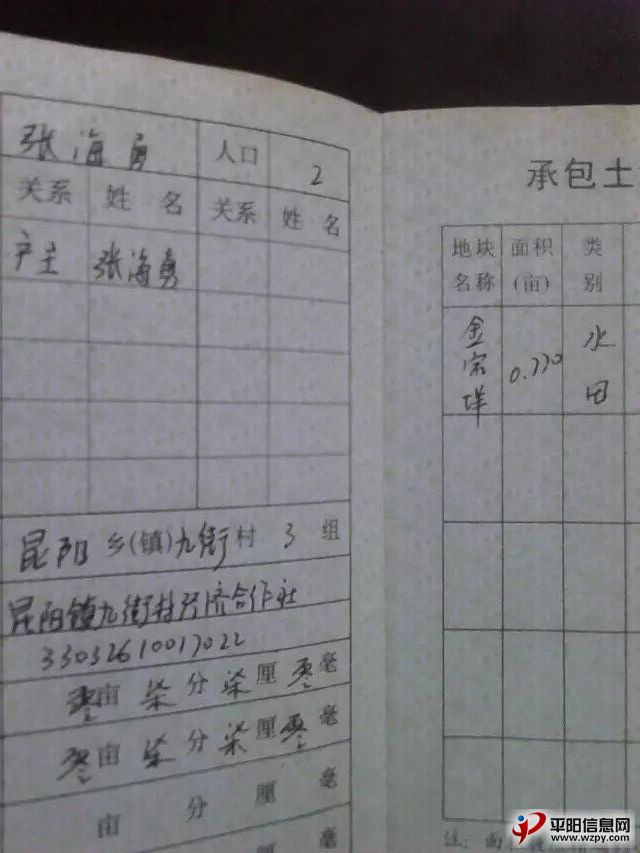 张海勇 人口 2
关系 姓名 关系 姓名
户主 张海勇
昆阳 乡(镇)九街村 3 组
昆阳镇九街村经济合作社
33032610017022
零亩柒分柒厘零毫
零亩柒分柒厘零毫
亩 分 厘 毫
毫
承包土
地块名称 面积(亩) 类别
金宗垟 0.770 水田
注:面
平阳信息网
www.wzpy.com